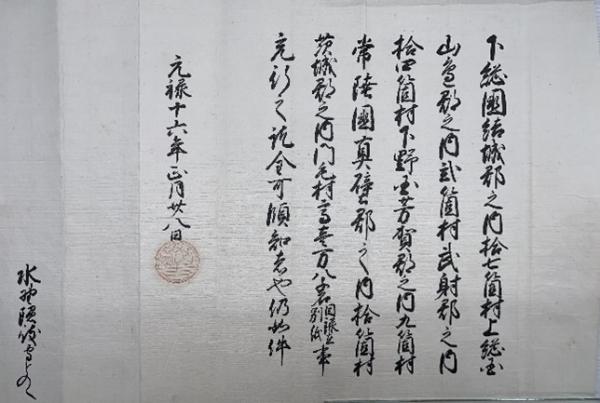 下総國結城郡之内拾七箇村上総国
山邊郡之内弐箇村武射郡之内
拾四箇村下野国芳賀郡之内九箇村
常陸國真壁郡之内拾箇村
茨城郡之内門毛村高壹万八千石目録在別紙事
充行之訖全可領知者也仍如件
元禄十六年正月廿八日
水野隠岐守とのへ